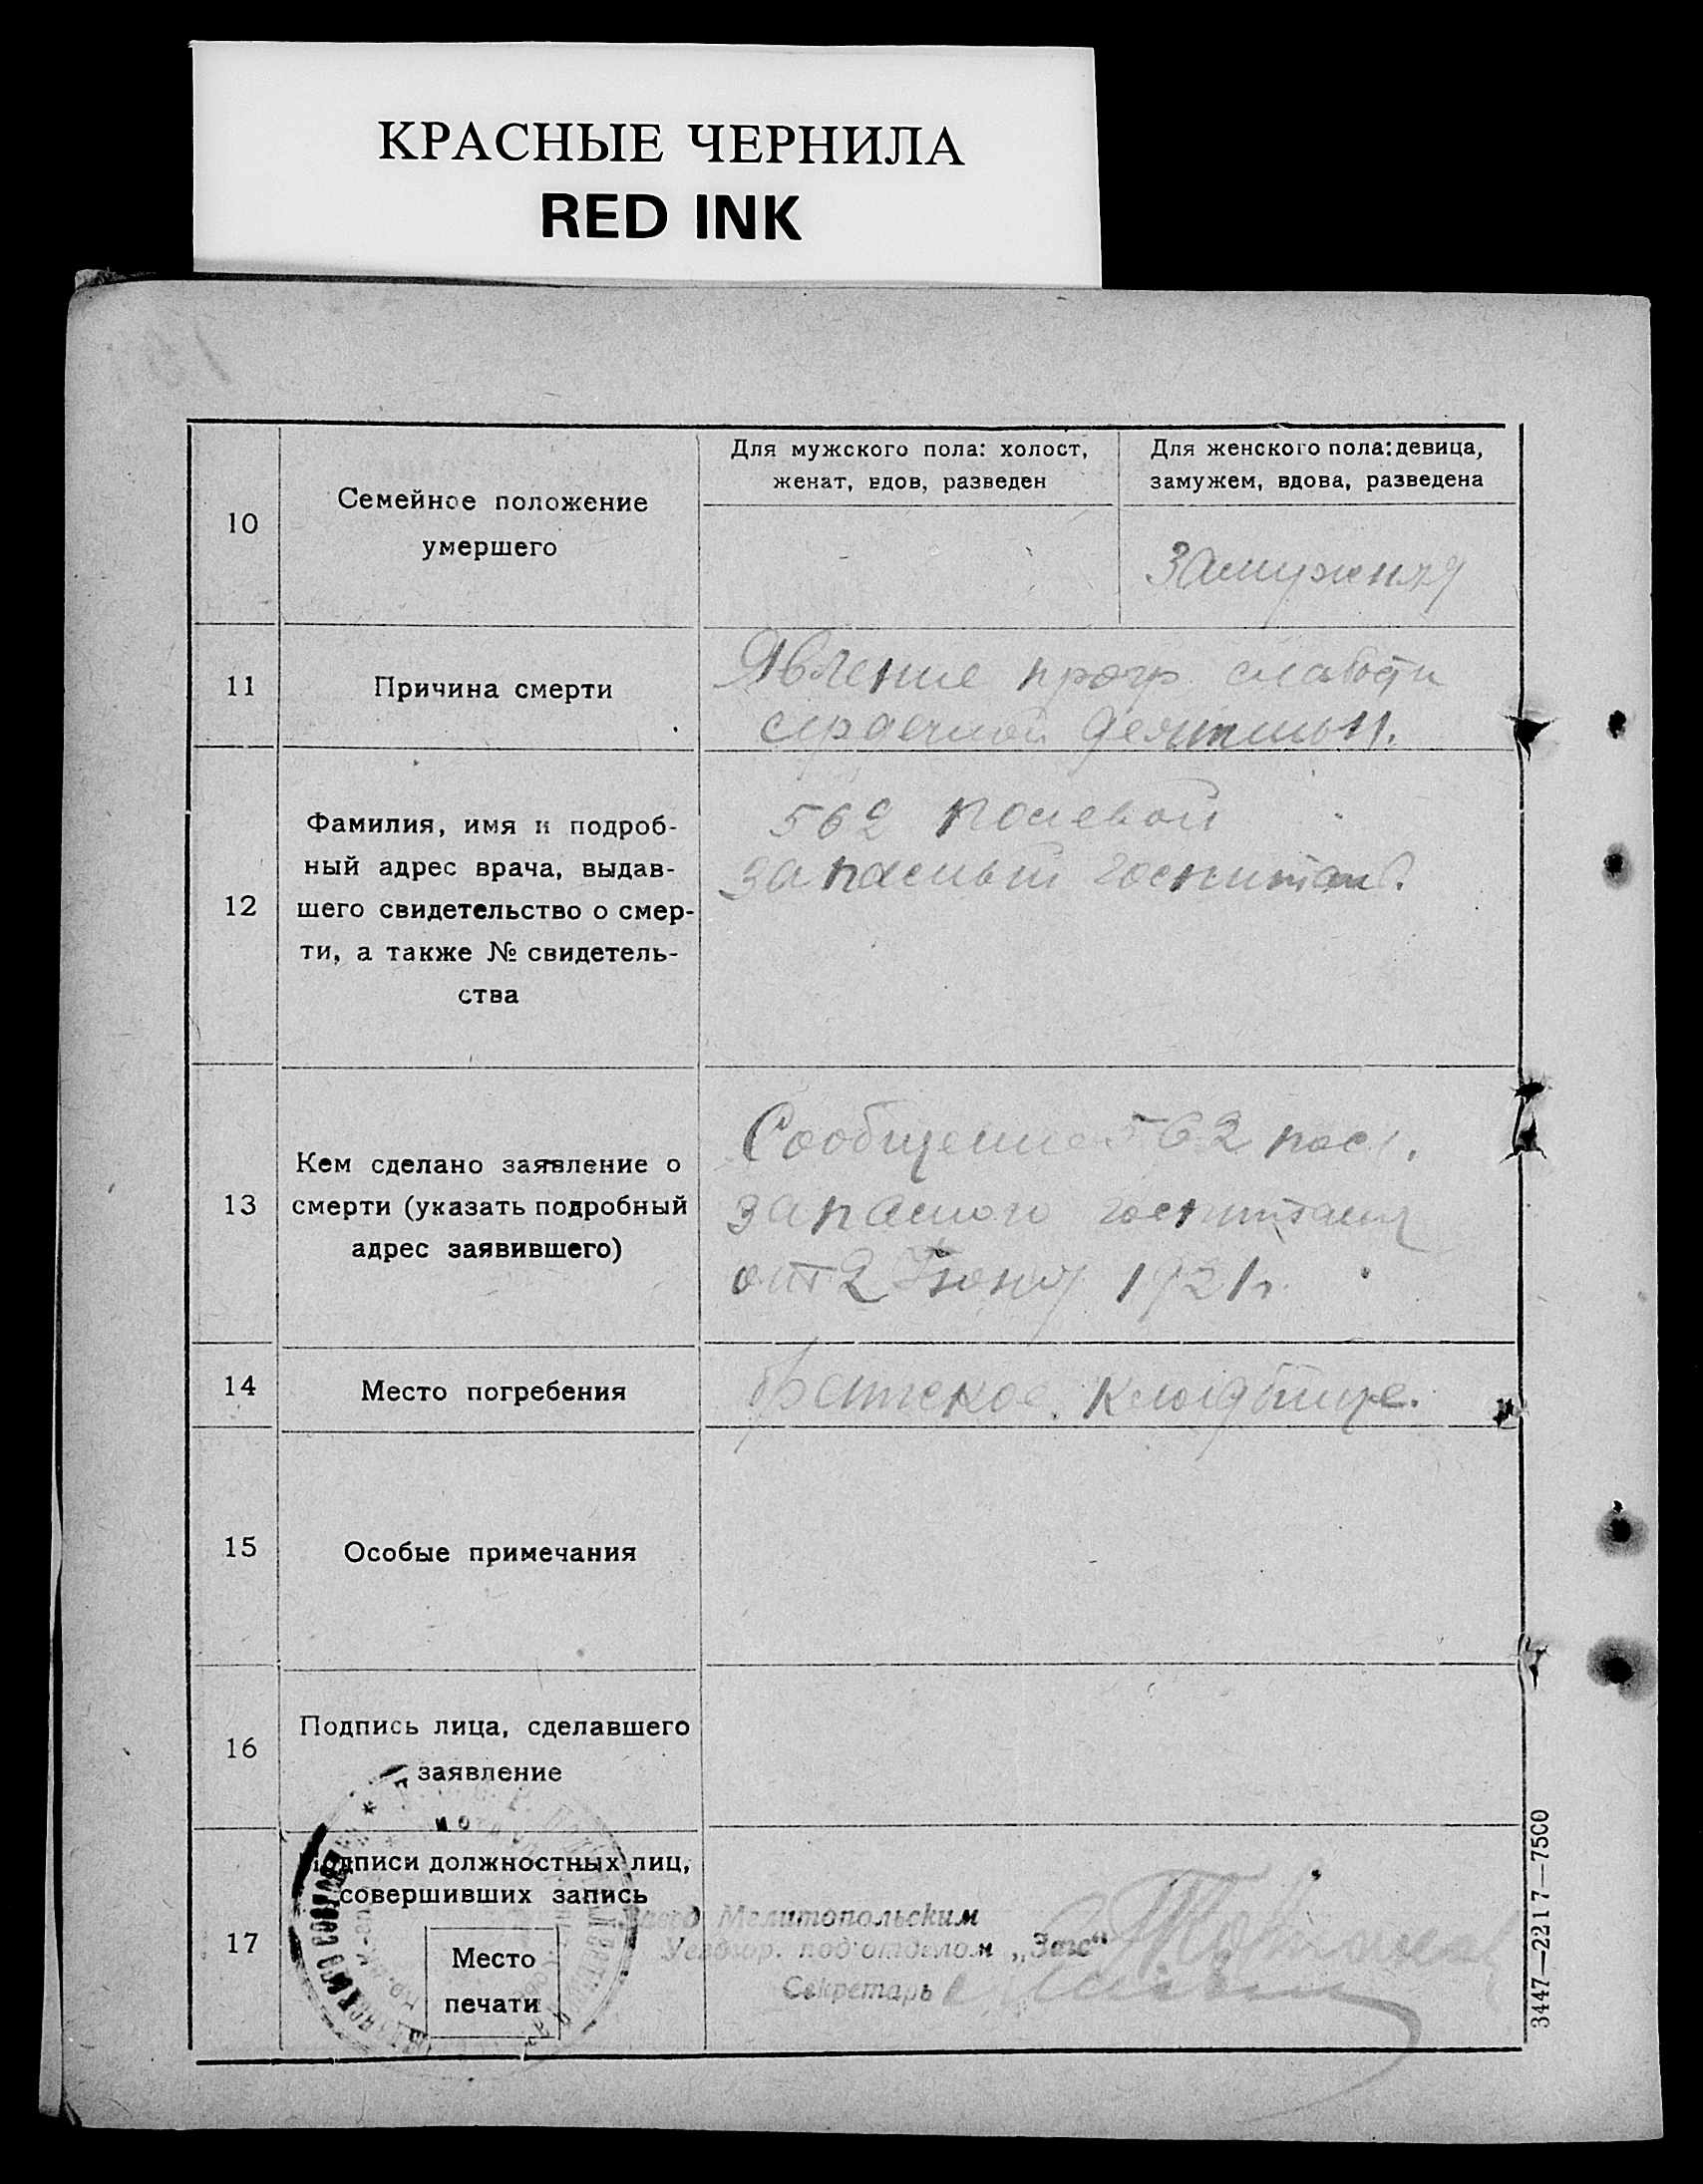 КРАСНЫЕ ЧЕРНИЛА
RED INK
10
Семейное положение
умершего
Для мужского пола: холост,
женат, вдов, разведен
Для женского пола: девица,
замужем, вдова, разведена
Замужняя
11
Причина смерти
Явление прогр. слабости
сердечной деятельн.
12
Фамилия, имя и подроб-
ный адрес врача, выдав-
шего свидетельство о смер-
ти, а также № свидетель-
ства
562 полевой
запасный госпиталь.
13
Кем сделано заявление о
смерти (указать подробный
адрес заявившего)
Сообщение 562 пол.
запасного госпиталя
от 2 Июня 1921 г.
14
Место погребения
братское кладбище.
15
Особые примечания
16
Подпись лица, сделавшего
заявление
17
Подписи должностных лиц,
совершивших запись
Место
печати
Завед. Мелитопольским
Уездгор. под'отделом „Загс“
Секретарь
3447—2217—7500